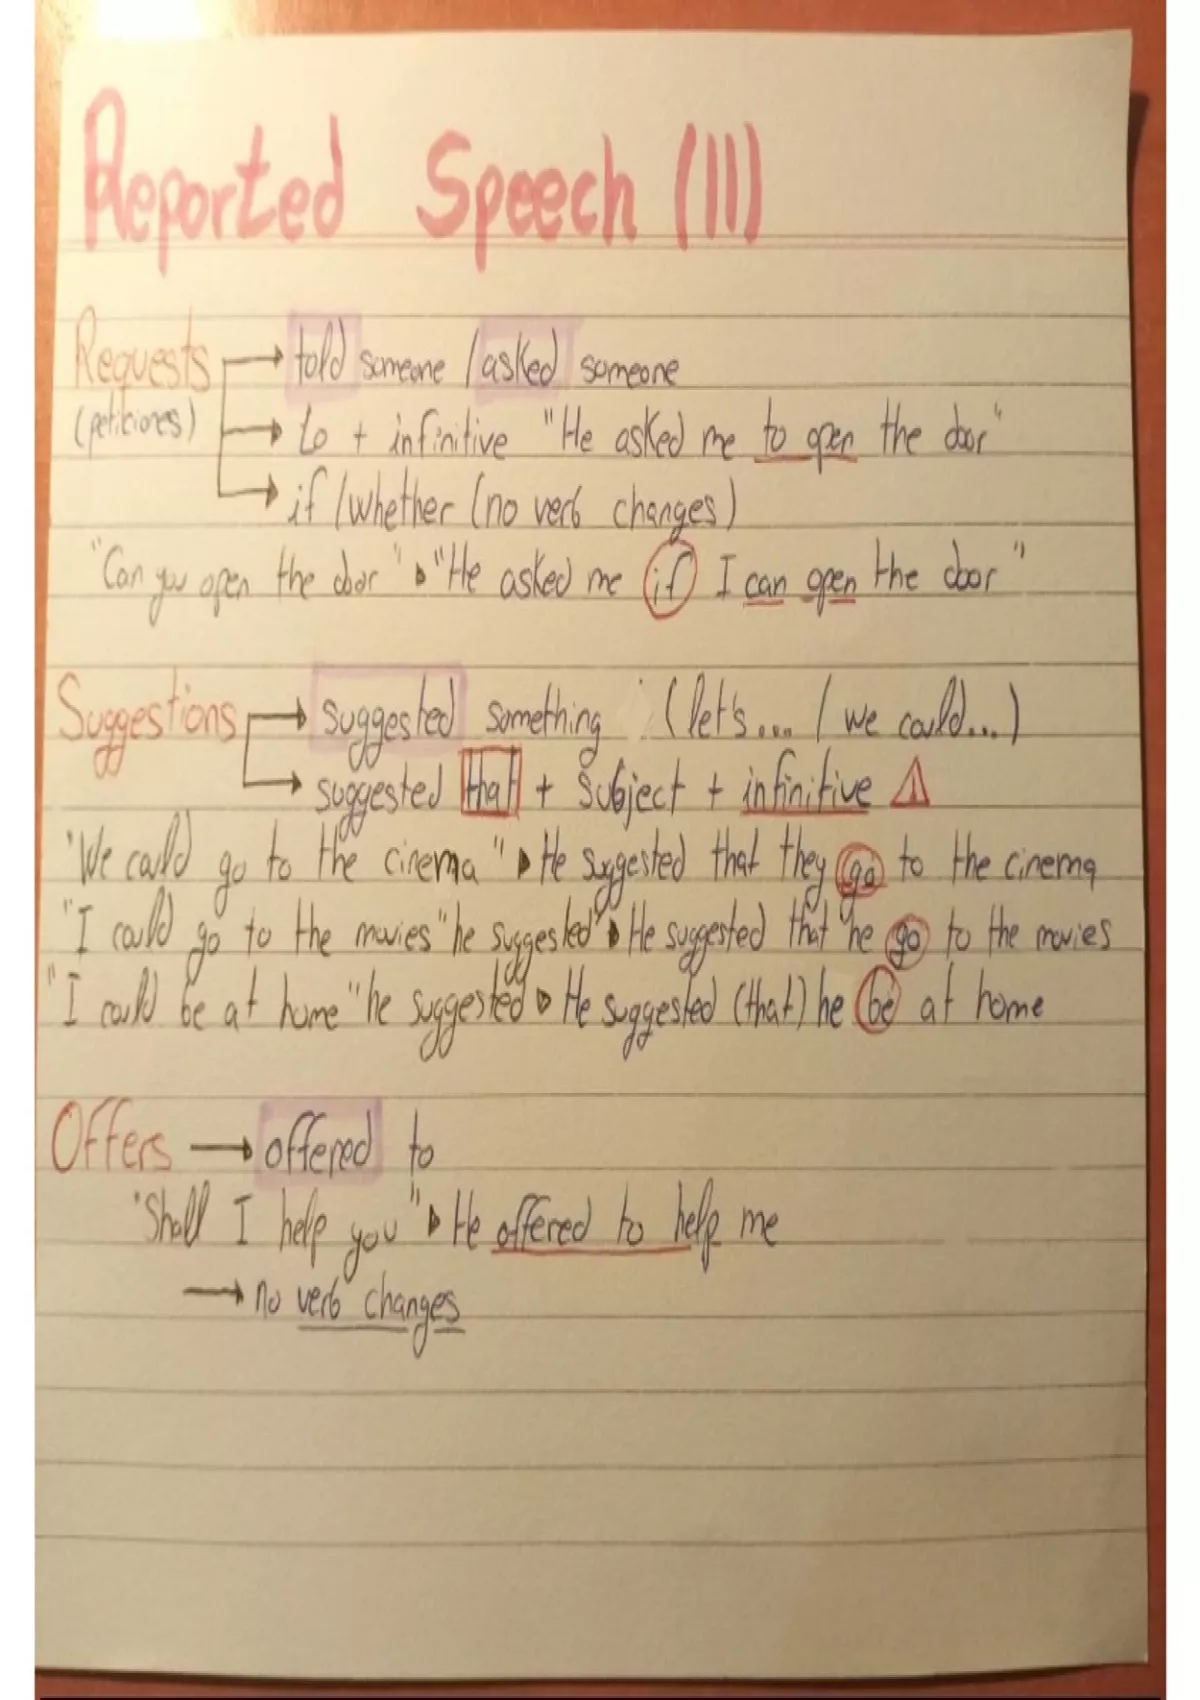 Reported Speech (III)
Requests → told someone / asked someone
(peticiones) → to + infinitive "He asked me to open the door"
→ if / whether (no verb changes)
"Can you open the door" ▸ "He asked me if I can open the door"
Suggestions → suggested something (let's... / we could...)
→ suggested that + Subject + infinitive ⚠
"We could go to the cinema" ▸ He suggested that they go to the cinema
"I could go to the movies" he suggested ▸ He suggested that he go to the movies
"I could be at home" he suggested ▸ He suggested (that) he be at home
Offers → offered to
"Shall I help you" ▸ He offered to help me
→ no verb changes